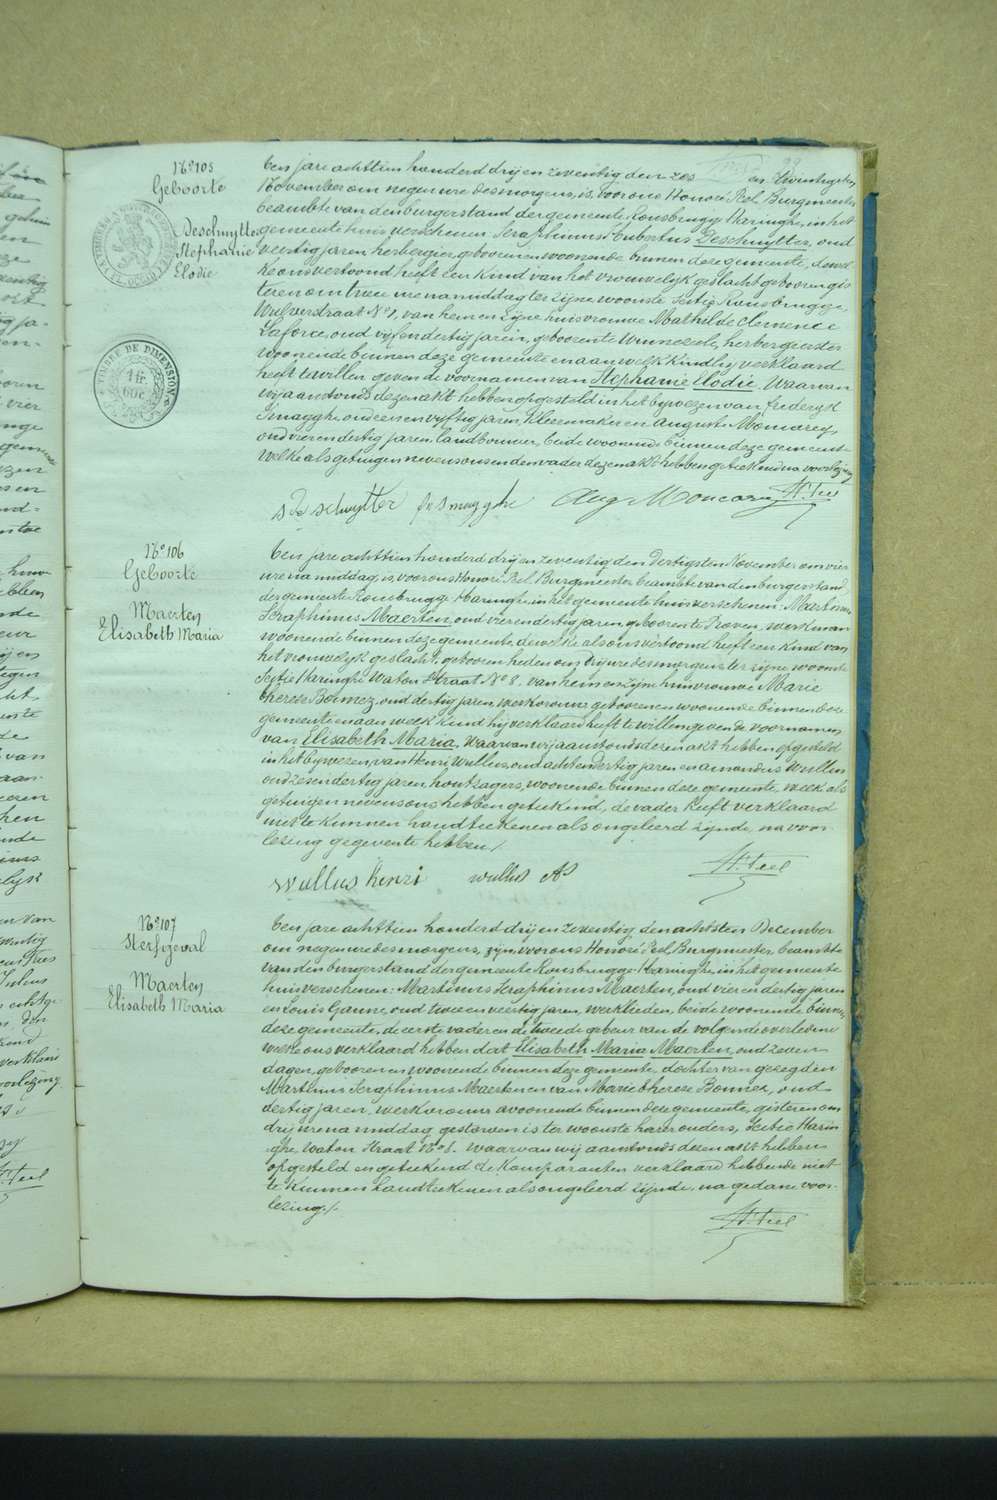 99
N° 105
Geboorte
Deschuytter
Stephanie
Elodie
TIMBRE DE DIMENSION
1 fr.
60c
Ten jare achttien honderd drij en zeventig den zes en twintigsten
November om negen ure des morgens, is, voor ons Honoré Peel Burgmeester
beambte van den burgerstand der gemeente Rousbrugge Haringhe, in het
gemeente huis verschenen Seraphinus Hubertus Deschuytter, oud
veertig jaren herbergier geboren en woonende binnen deze gemeente, dewel
ke ons vertoond heeft een kind van het vrouwelijk geslacht geboren gis
teren om twee ure namiddag ter zijne woonste Sectie Rousbrugge,
straat N° 1, van hem en zijne huisvrouwe Mathilde Clemence
Laforce, oud vijf en dertig jaren, geboren te Winnezeele, herbergierster
woonende binnen deze gemeente en aan welk kind hij verklaard
heeft te willen geven de voornamen van Stephanie Elodie. Waarvan
wij aanstonds dezen akt hebben opgesteld in het bijwezen van frederyk
Smagghe, oud een en vyftig jaren, kleermaker en Auguste Moncarey,
oud vier en dertig jaren, landbouwer, beide woonende binnen deze gemeente
welke als getuigen nevens ons en den vader dezen akt hebben geteekend na voorlezing
S Deschuytter fr Smagghe Aug Moncarey H. Peel
N° 106
Geboorte
Maerten
Elisabeth Maria
Ten jare achttien honderd drij en zeventig den dertigsten November om vier
ure na middag, is, voor ons Honoré Peel Burgmeester beambte van den burgerstand
der gemeente Rousbrugge Haringhe, in het gemeente huis verschenen: Martinus
Seraphinus Maerten, oud vier en dertig jaren, geboren te Proven, werkman
woonende binnen deze gemeente, dewelke als ons vertoond heeft een kind van
het vrouwelijk geslacht, geboren heden om drij ure des morgens ter zijne woonste
Sectie Haringhe Waton Straat N° 8. van hem en zijne huisvrouwe Marie
therese Bonnez, oud dertig jaren, werkvrouw geboren en woonende binnen deze
gemeente en aan welk kind hij verklaard heeft te willen geven de voornamen
van Elisabeth Maria. Waarvan wij aanstonds dezen akt hebben opgesteld
in het bijwezen van Henri Wullus, oud acht en dertig jaren en Amandus Wullus
oud zes en dertig jaren, houtzagers, woonende binnen deze gemeente, welk als
getuigen nevens ons hebben geteekend, de vader heeft verklaard
niet te kunnen handteekenen als ongeleerd zijnde, na voor
lezing gegeven te hebben ./.
Wullus henri wullus AD H. Peel
N° 107
Sterfgeval
Maerten
Elisabeth Maria
Ten jare achttien honderd drij en zeventig den achtsten December
om negen ure des morgens, zijn voor ons Honoré Peel Burgmeester, beambte
van den burgerstand der gemeente Rousbrugge Haringhe in het gemeente
huis verschenen: Martinus Seraphinus Maerten, oud vier en dertig jaren
en Louis Ganne, oud twee en veertig jaren, werklieden, beide woonende binnen
deze gemeente, de eerste vader en de tweede gebuur van de volgende overledene
welke ons verklaard hebben dat Elisabeth Maria Maerten, oud zeven
dagen, geboren en woonende binnen deze gemeente, dochter van gezegden
Martinus Seraphinus Maerten en van Marie therese Bonnez, oud
dertig jaren, werkvrouw woonende binnen deze gemeente, gisteren om
drij ure na middag gestorven is ter woonste harer ouders, Sectie Harin
ghe, Waton Straat N° 8. waarvan wij aanstonds dezen akt hebben
opgesteld en geteekend de komparanten verklaard hebbende niet
te kunnen handteekenen als ongeleerd zijnde, na gedane voor
lezing ./.
H. Peel